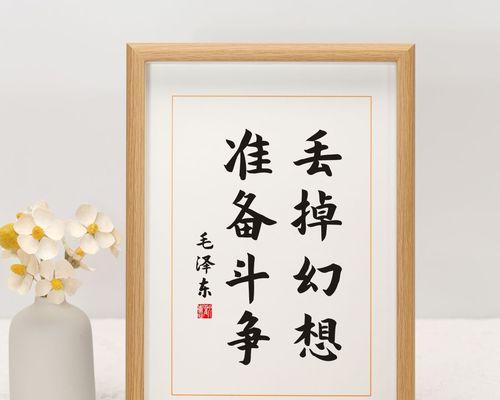 丢掉幻想
准备斗争
毛泽东